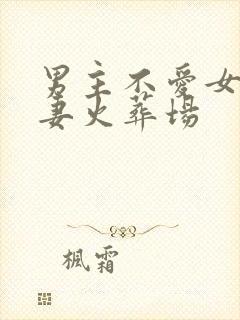 男主不愛女
妻火葬場
楓霜